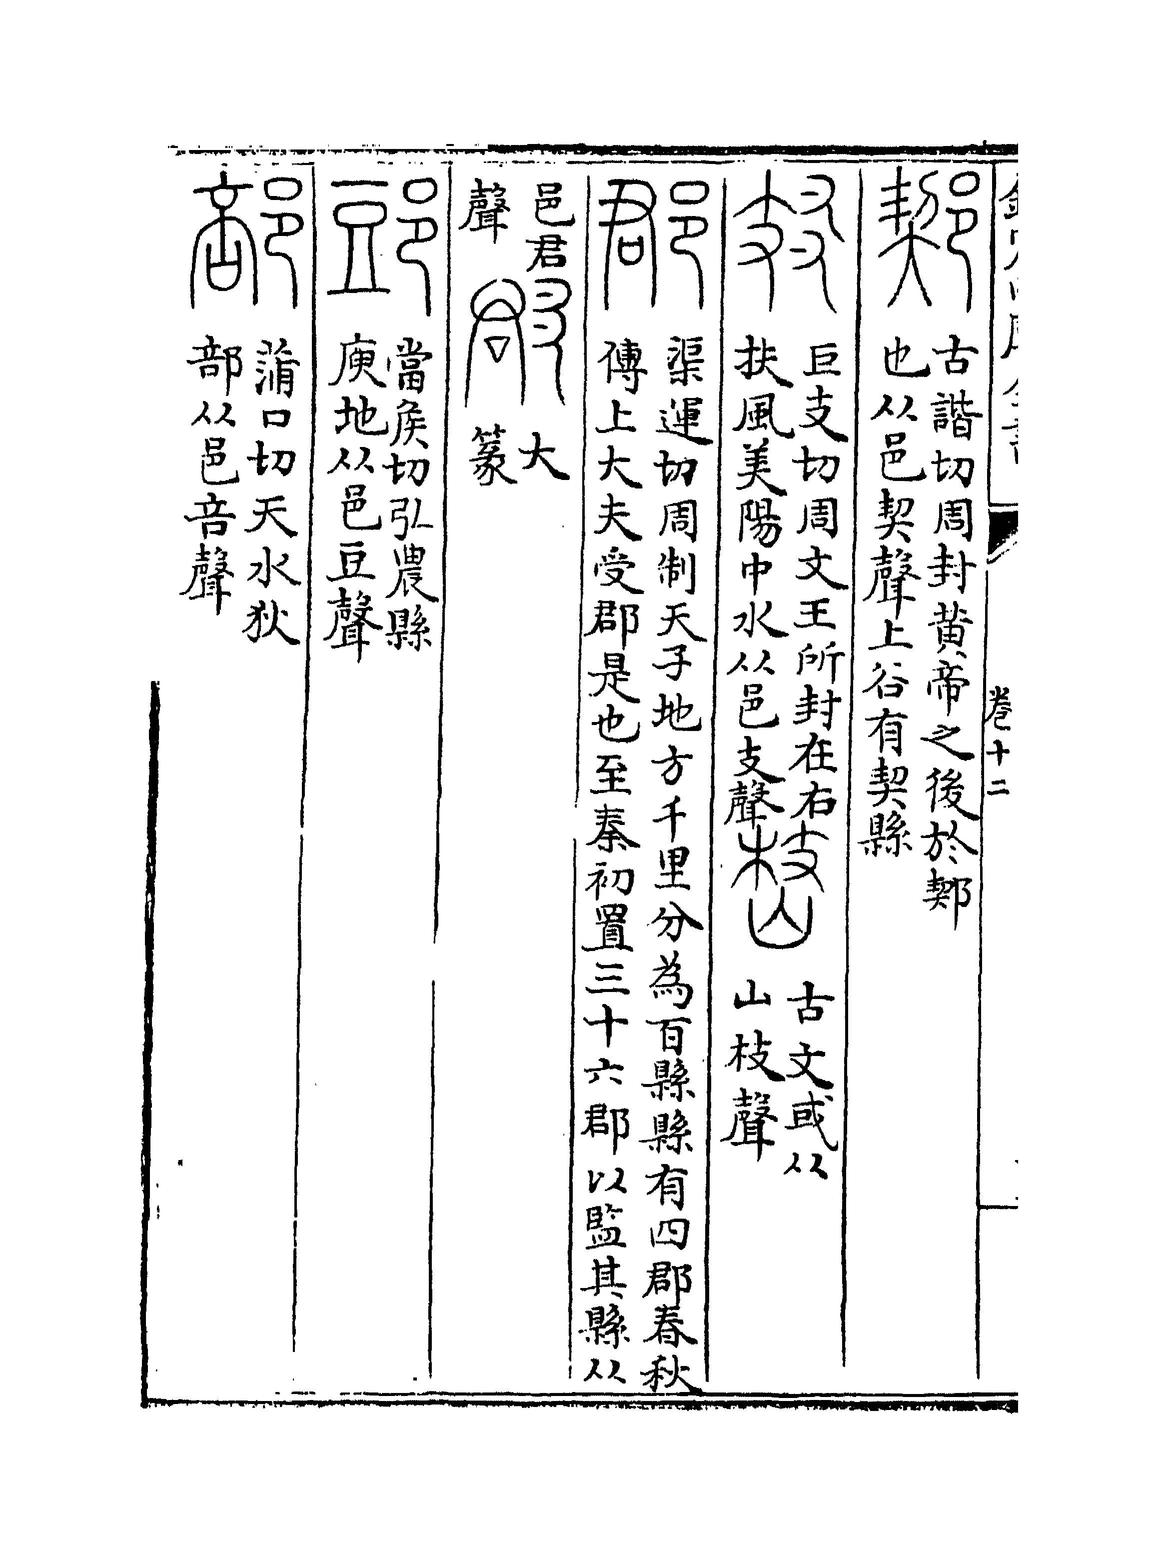 欽定四庫全書
卷十二
古諧切周封黄帝之後於
也从邑契聲上谷有契縣
巨支切周文王所封在右
扶風美陽中水从邑支聲
古文或从
山枝聲
郡
渠運切周制天子地方千里分為百縣縣有四郡春秋
傳上大夫受郡是也至秦初置三十六郡以監其縣从
邑君
聲
大
篆
郖
當侯切弘農縣
庾地从邑豆聲
部
蒲口切天水狄
部从邑咅聲